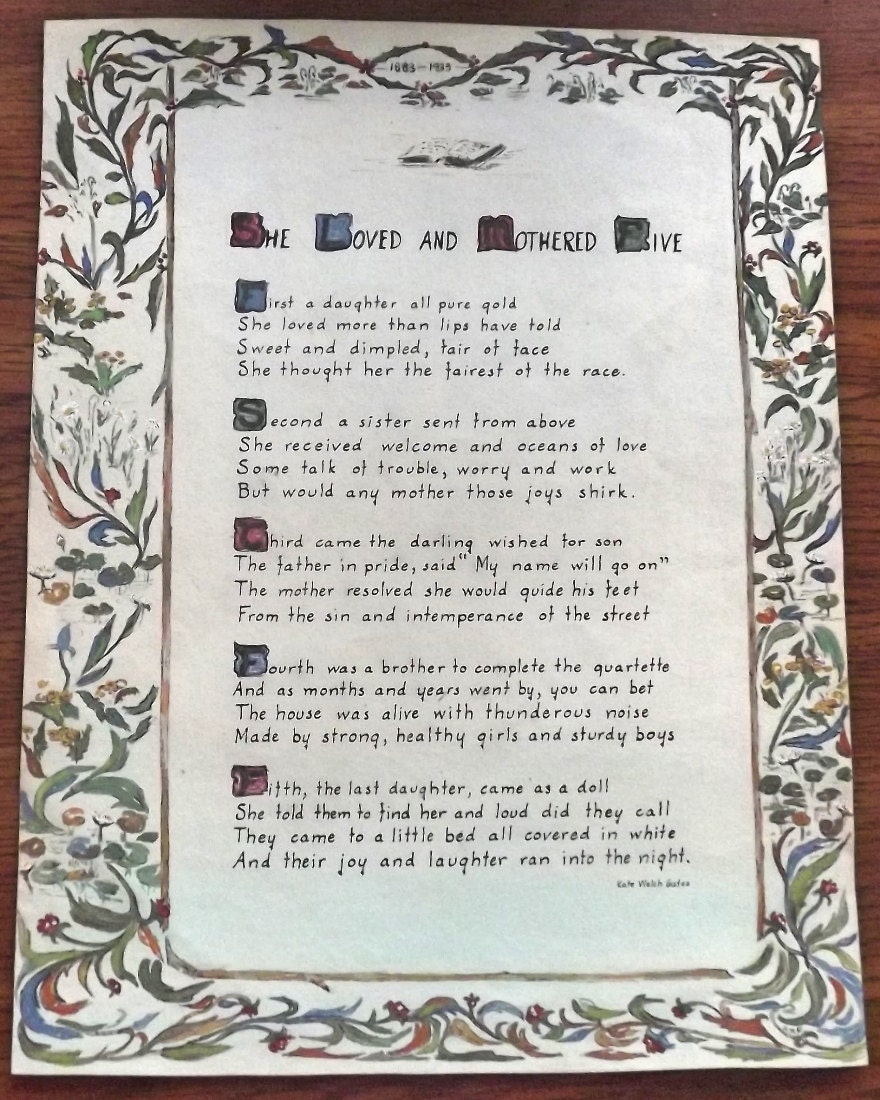 1883-1933
She Loved and Mothered Five
First a daughter all pure gold
She loved more than lips have told
Sweet and dimpled, fair of face
She thought her the fairest of the race.
Second a sister sent from above
She received welcome and oceans of love
Some talk of trouble, worry and work
But would any mother those joys shirk.
Third came the darling wished for son
The father in pride, said "My name will go on"
The mother resolved she would guide his feet
From the sin and intemperance of the street
Fourth was a brother to complete the quartette
And as months and years went by, you can bet
The house was alive with thunderous noise
Made by strong, healthy girls and sturdy boys
Fifth, the last daughter, came as a doll
She told them to find her and loud did they call
They came to a little bed all covered in white
And their joy and laughter ran into the night.
Kate Welch